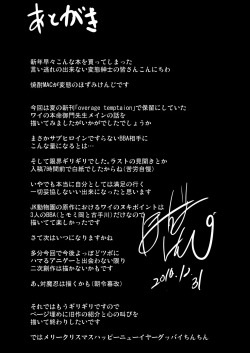 あとがき
新年早々こんな本を買ってしまった
言い逃れの出来ない変態紳士の皆さんこんにちわ
焼酎MACが変態のほずみけんじです
今回は夏の新刊「overage temptaion」で保留にしていた
ワイの本命御門先生メインの話を
描いてみましたがいかがでしたでしょうか
まさかサブヒロインですらないBBA相手に
こんな量になるとは…
そして限界ギリギリでした。ラストの見開きとか
入稿7時間前で白紙でしたからね(苦労自慢)
いやでも本当に自分としては満足の行く
一切妥協しない出来になったと思います
JK動物園の原作におけるワイのヌキポイントは
3人のBBA(とモミ岡と古手川)だけなので
描いてて楽しかったです
さて次はいつになりますかね
多分今回で今後よっぽどツボに
ハマるアニゲーと出会わない限り
二次創作は描かないかもです
あ、対魔忍は描くかも(朝令暮改)
それではもうギリギリですので
ページ埋めに旧作の紹介と心の叫びを
描いて終わりたいです
ではメリークリスマスハッピーニューイヤーグッバイちんちん
2016.12.31